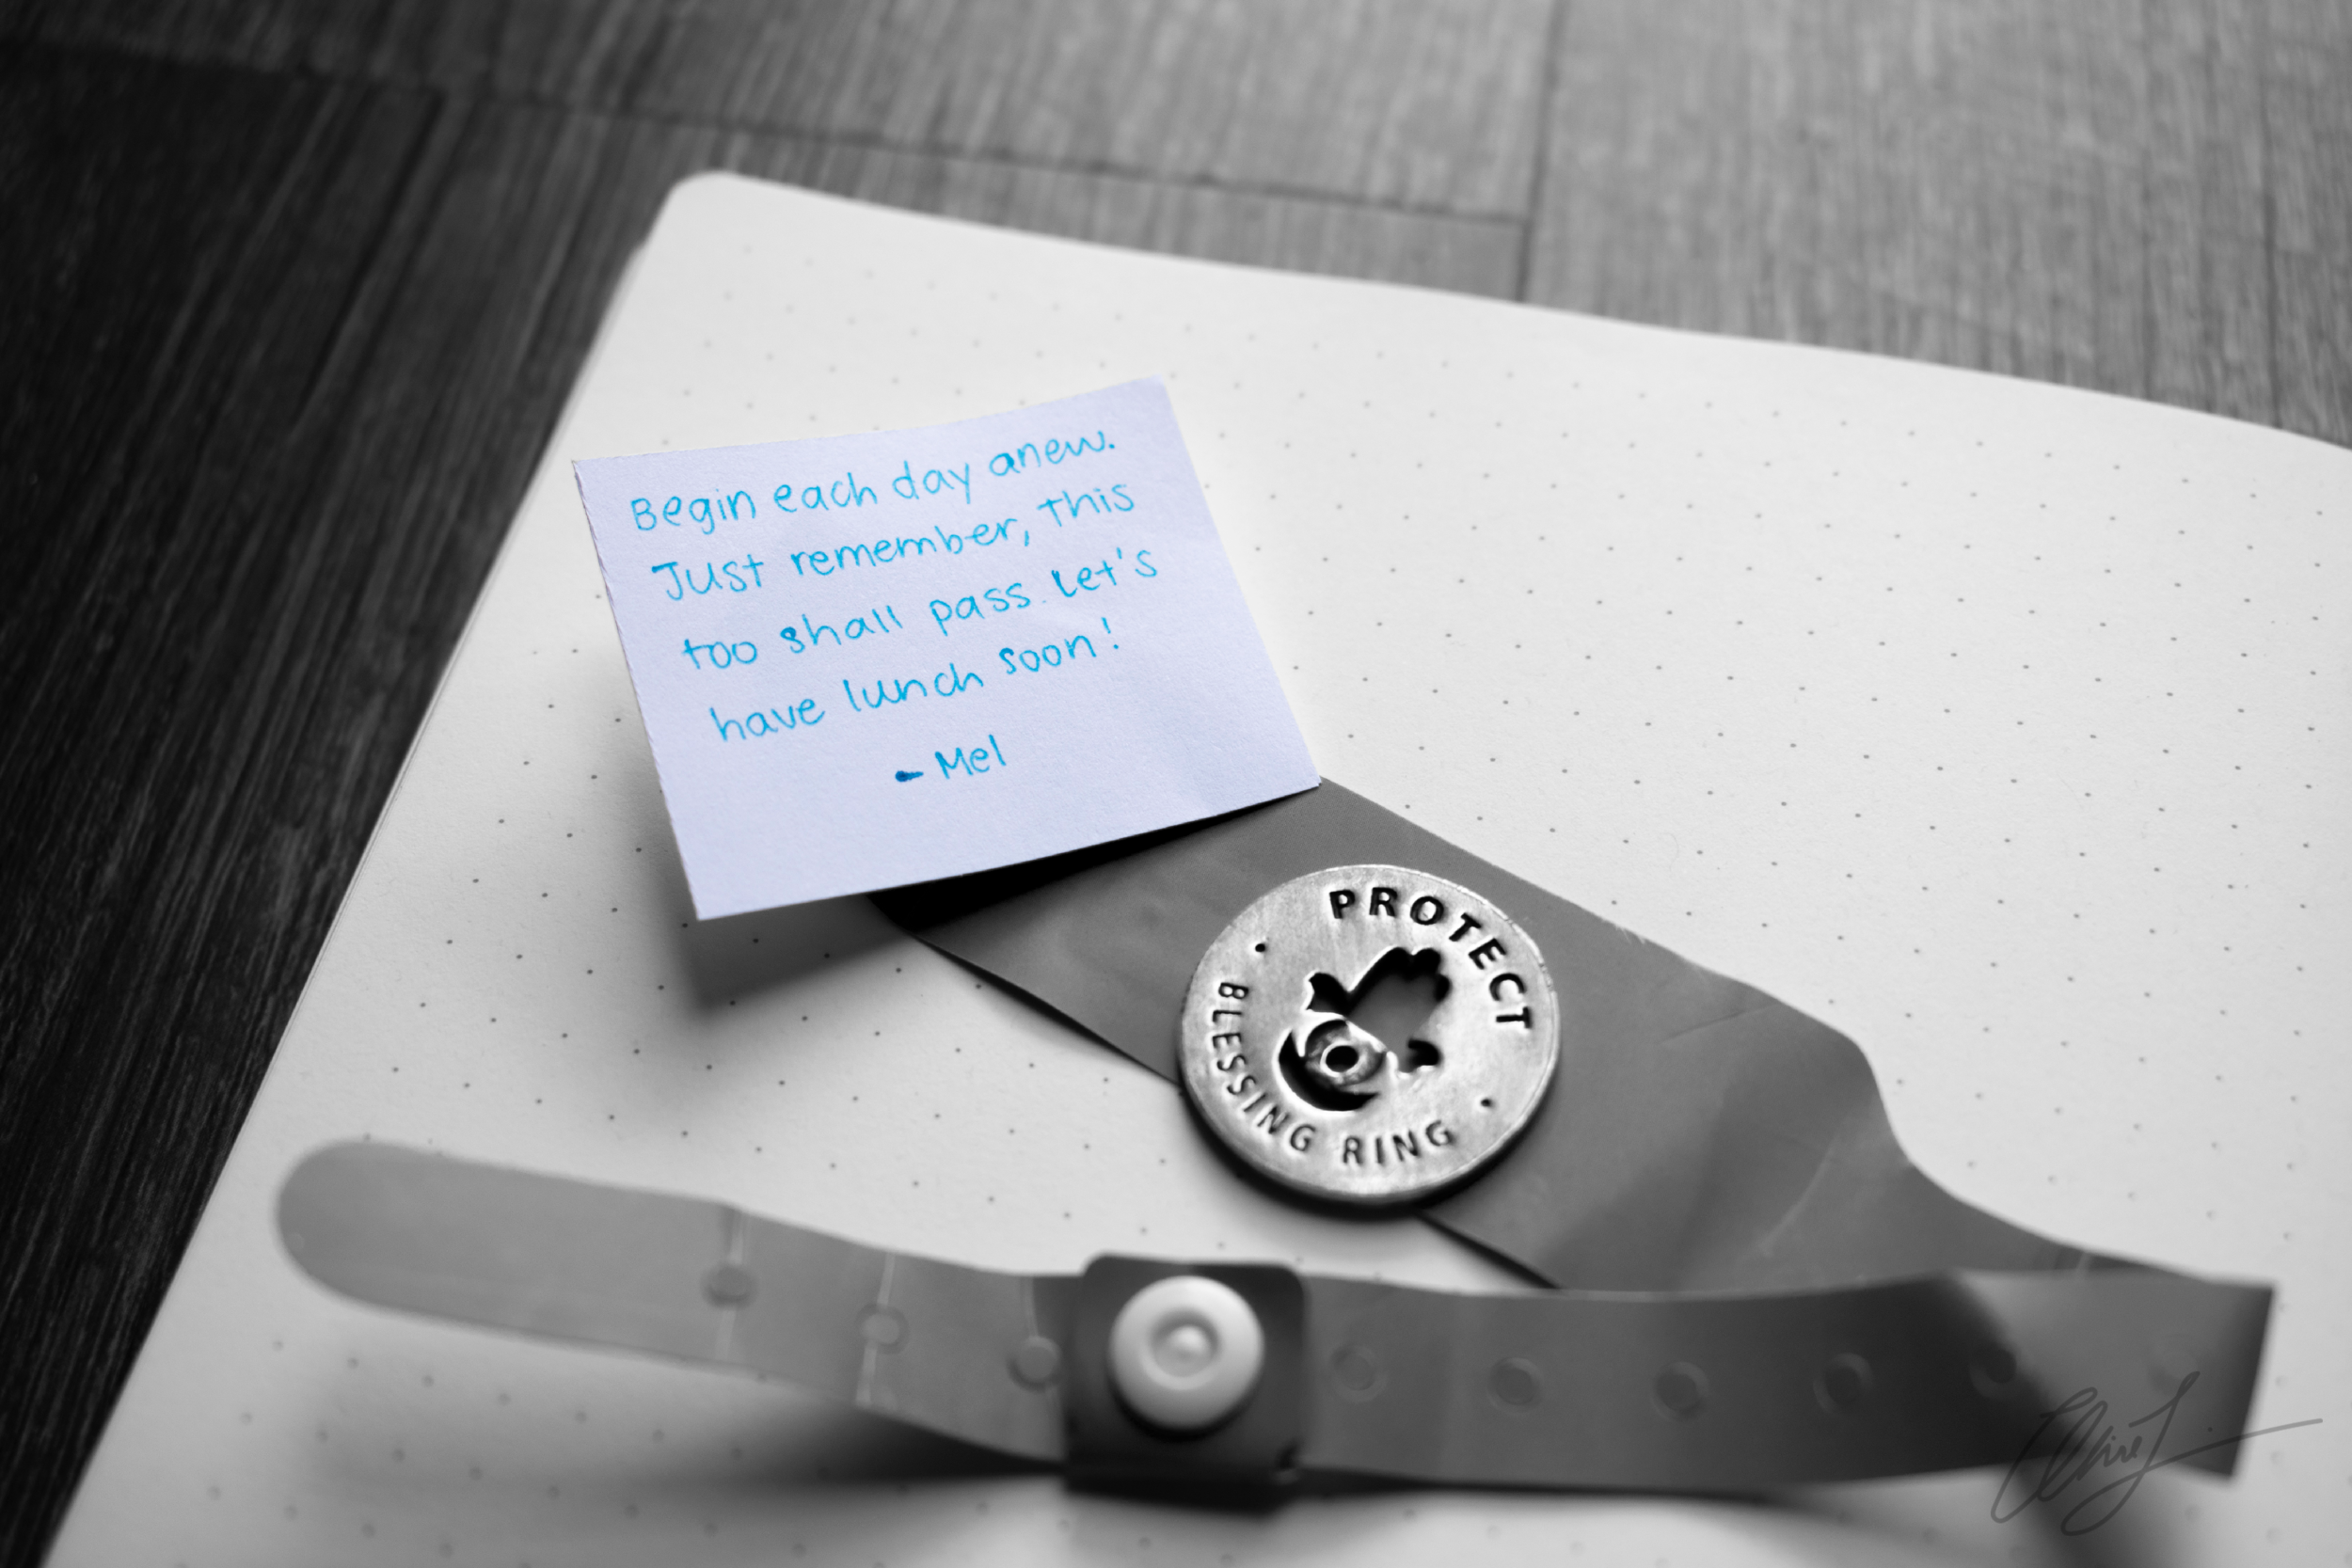 Begin each day anew.
Just remember, this
too shall pass. Let's
have lunch soon!
- Mel
PROTECT
• BLESSING RING •